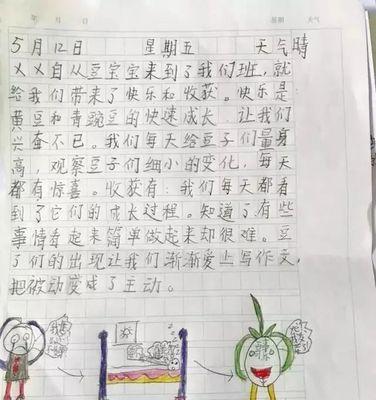 年 月 日 星期 天气
5月12日 星期五 天气晴
乂乂自从豆宝宝来到了我们班，就
给我们带来了快乐和收获。快乐是
黄豆和青豌豆的快速成长，让我们
兴奋不已。我们每天给豆子们量身
高，观察豆子们细小的变化，每天
都有惊喜。收获有：我们每天都看
到了它们的成长过程。知道了有些
事情看起来简单做起来却很难。豆
了们的出现让我们渐渐爱上写作文，
把被动变成了主动。